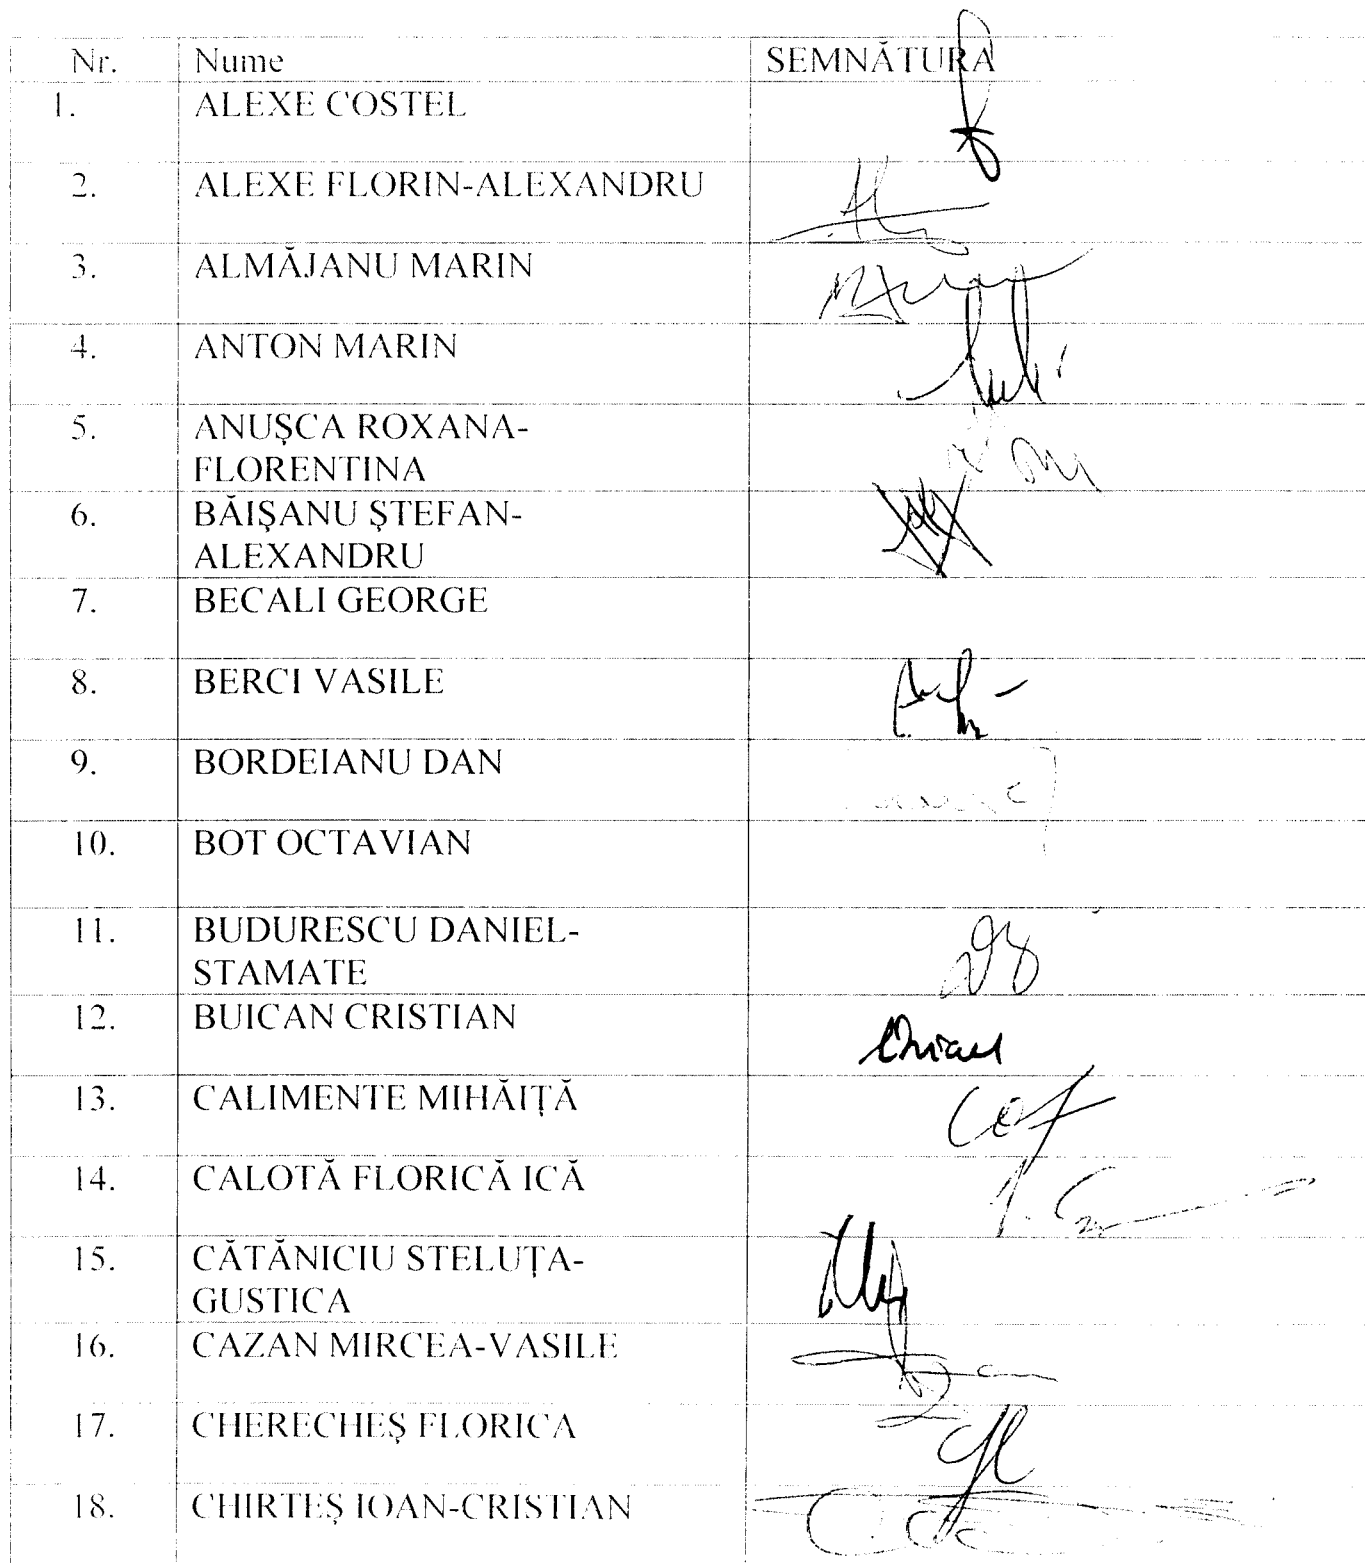 Nr. Nume SEMNĂTURA
1. ALEXE COSTEL
2. ALEXE FLORIN-ALEXANDRU
3. ALMĂJANU MARIN
4. ANTON MARIN
5. ANUŞCA ROXANA-
FLORENTINA
6. BĂIŞANU ŞTEFAN-
ALEXANDRU
7. BECALI GEORGE
8. BERCI VASILE
9. BORDEIANU DAN
10. BOT OCTAVIAN
11. BUDURESCU DANIEL-
STAMATE
12. BUICAN CRISTIAN
13. CALIMENTE MIHĂIŢĂ
14. CALOTĂ FLORICĂ ICĂ
15. CĂTĂNICIU STELUŢA-
GUSTICA
16. CAZAN MIRCEA-VASILE
17. CHERECHEŞ FLORICA
18. CHIRTEŞ IOAN-CRISTIAN